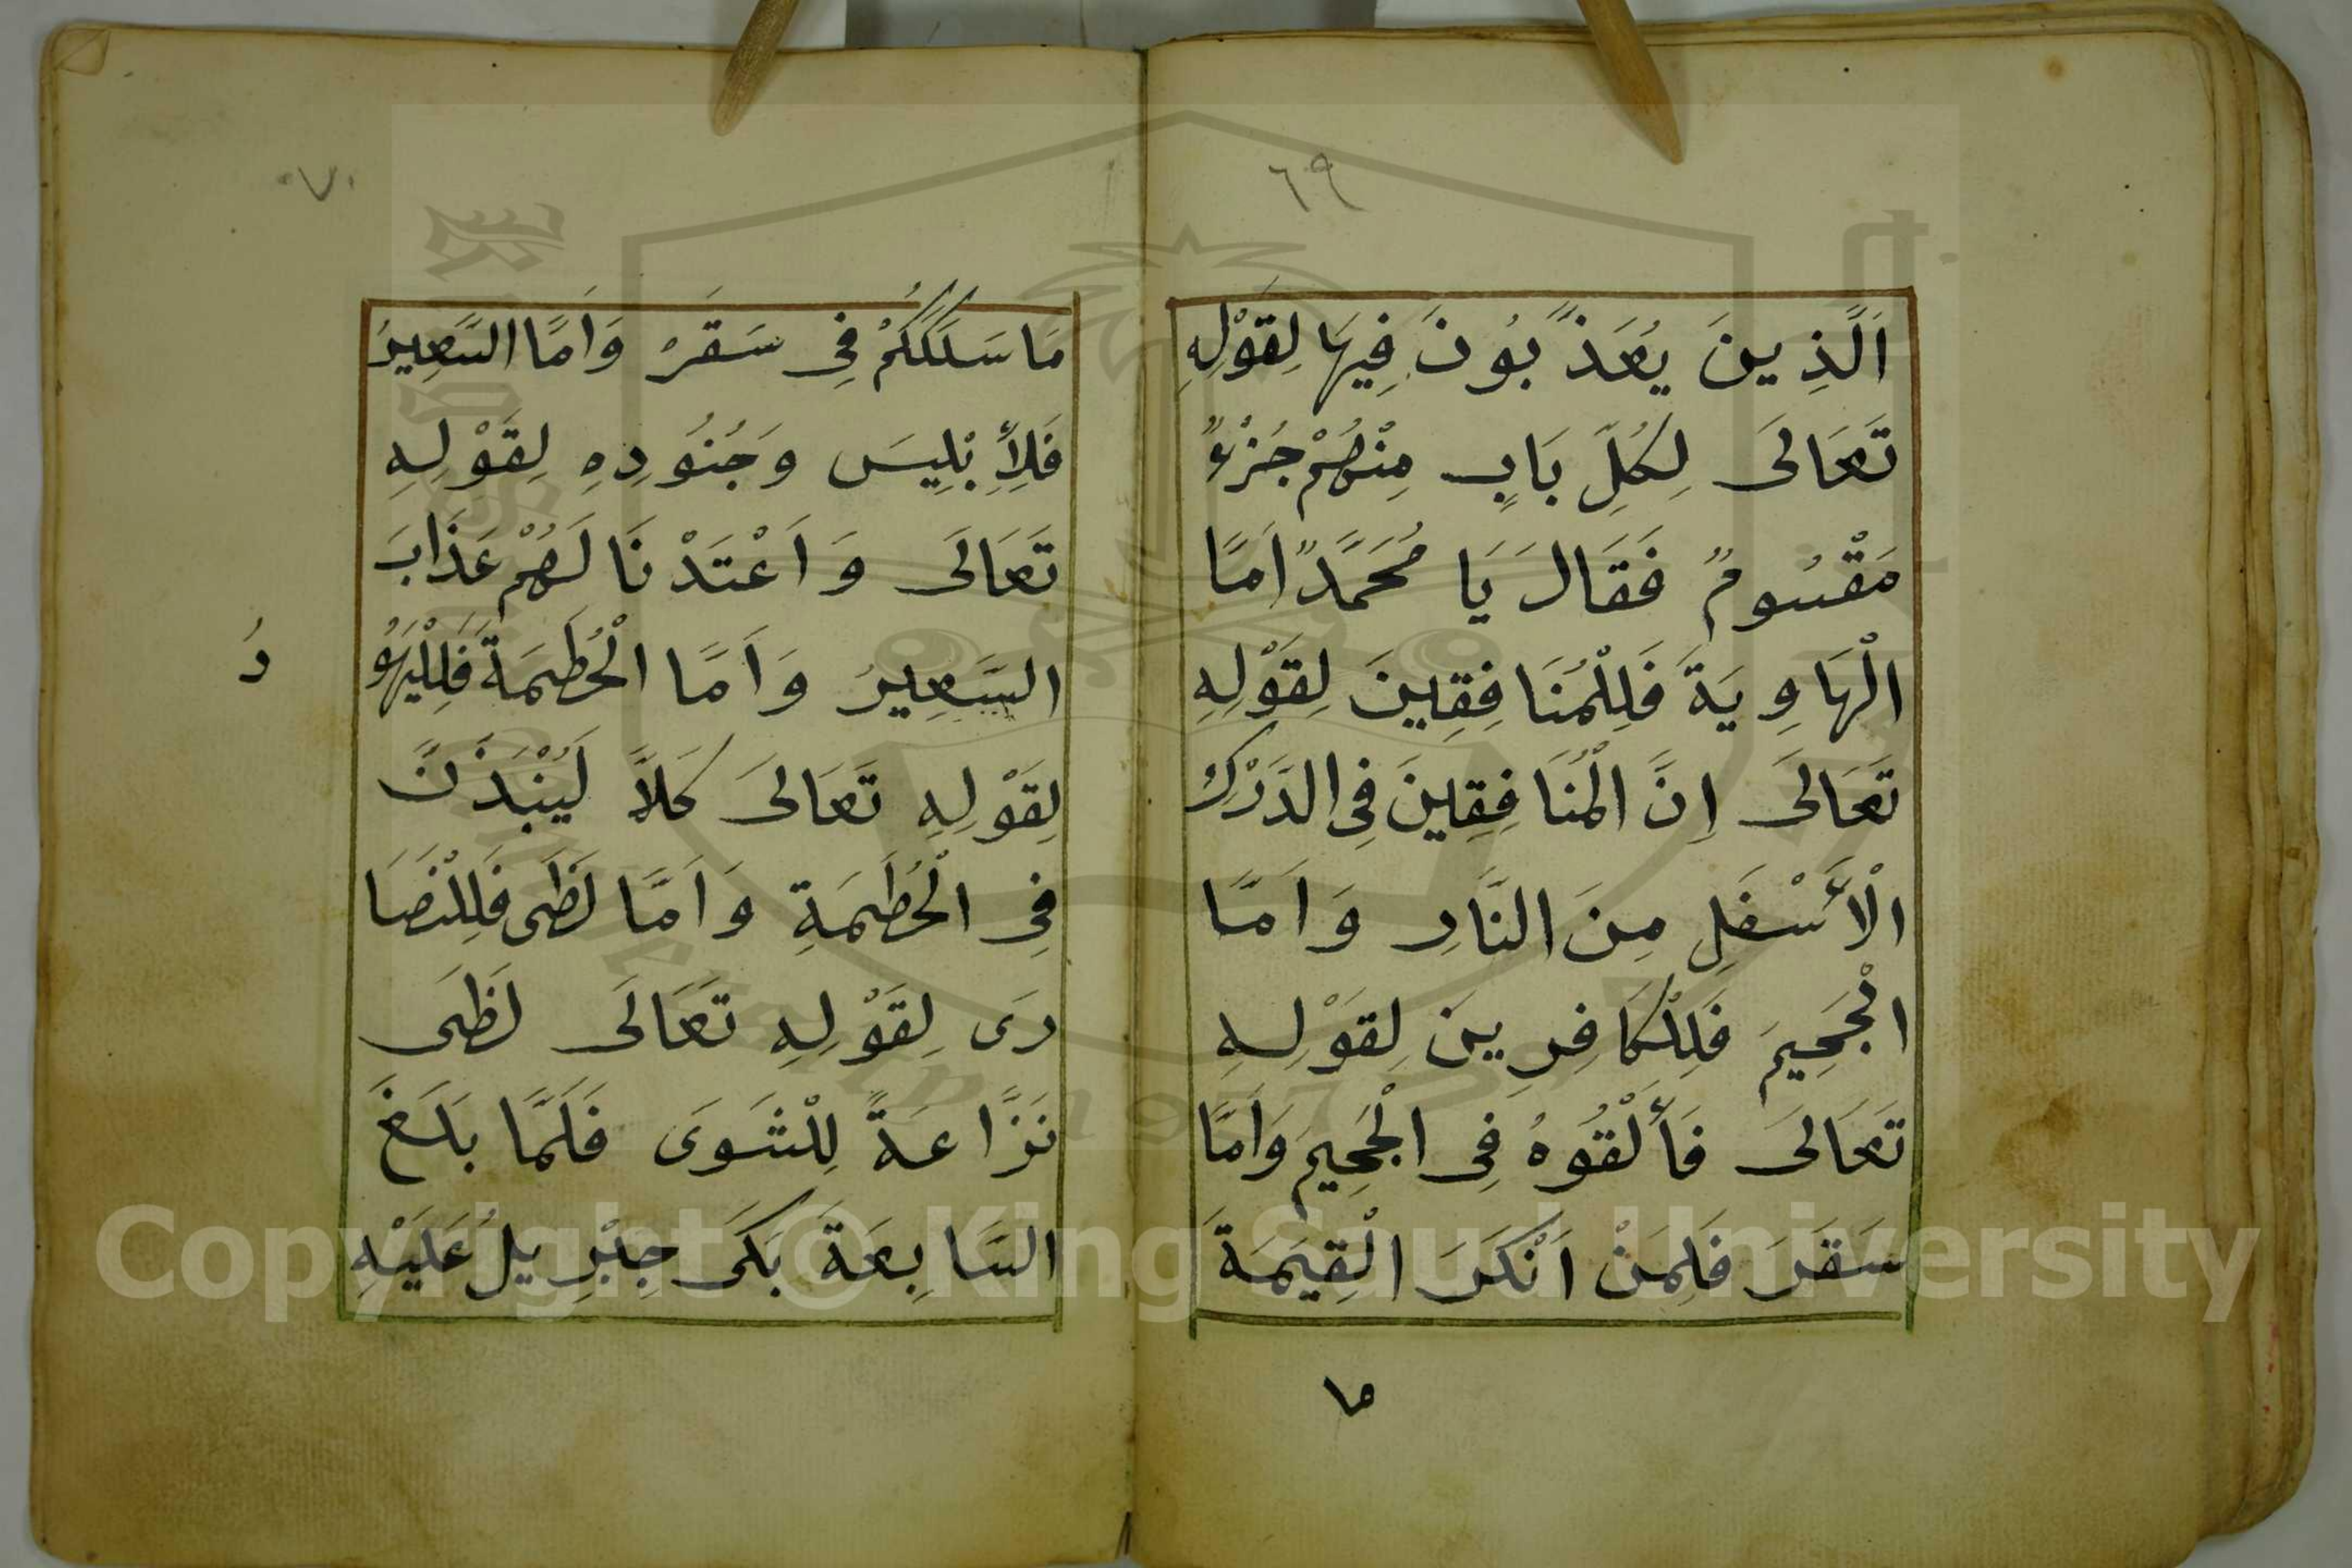 ٦٩
اَلَّذِينَ يُعَذَّبُونَ فِيهَا لِقَوْلِهِ
تَعَالَى لِكُلِّ بَابٍ مِنْهُمْ جُزْءٌ
مَقْسُومٌ فَقَالَ يَا مُحَمَّدُ اَمَّا
الْهَاوِيَةَ فَلِلْمُنَافِقِينَ لِقَوْلِهِ
تَعَالَى اِنَّ الْمُنَافِقِينَ فِى الدَّرْكِ
الْأَسْفَلِ مِنَ النَّارِ وَاَمَّا
الْجَحِيمَ فَلِلْكَافِرِينَ لِقَوْلِهِ
تَعَالَى فَأَلْقُوهُ فِى الْجَحِيمِ وَاَمَّا
سَقَرَ فَلِمَنْ اَنْكَرَ الْقِيَمَةَ
ما
٧٠
مَا سَلَكَكُمْ فِى سَقَرَ وَاَمَّا السَّعِيرُ
فَلِأِبْلِيسَ وَجُنُودِهِ لِقَوْلِهِ
تَعَالَى وَاَعْتَدْنَا لَهُمْ عَذَابَ
السَّعِيرُ وَاَمَّا الْحُطَمَةَ فَلِلْيَهُو
دُ
لِقَوْلِهِ تَعَالَى كَلَّا لَيُنْبَذَنَّ
فِى الْحُطَمَةِ وَاَمَّا لَظَى فَلِلنَّصَا
رَى لِقَوْلِهِ تَعَالَى لَظَى
نَزَّاعَةً لِلْشَوَى فَلَمَّا بَلَغَ
السَّابِعَةَ بَكَى جِبْرِيلُ عَلَيْهِ
Copyright © King Saud University